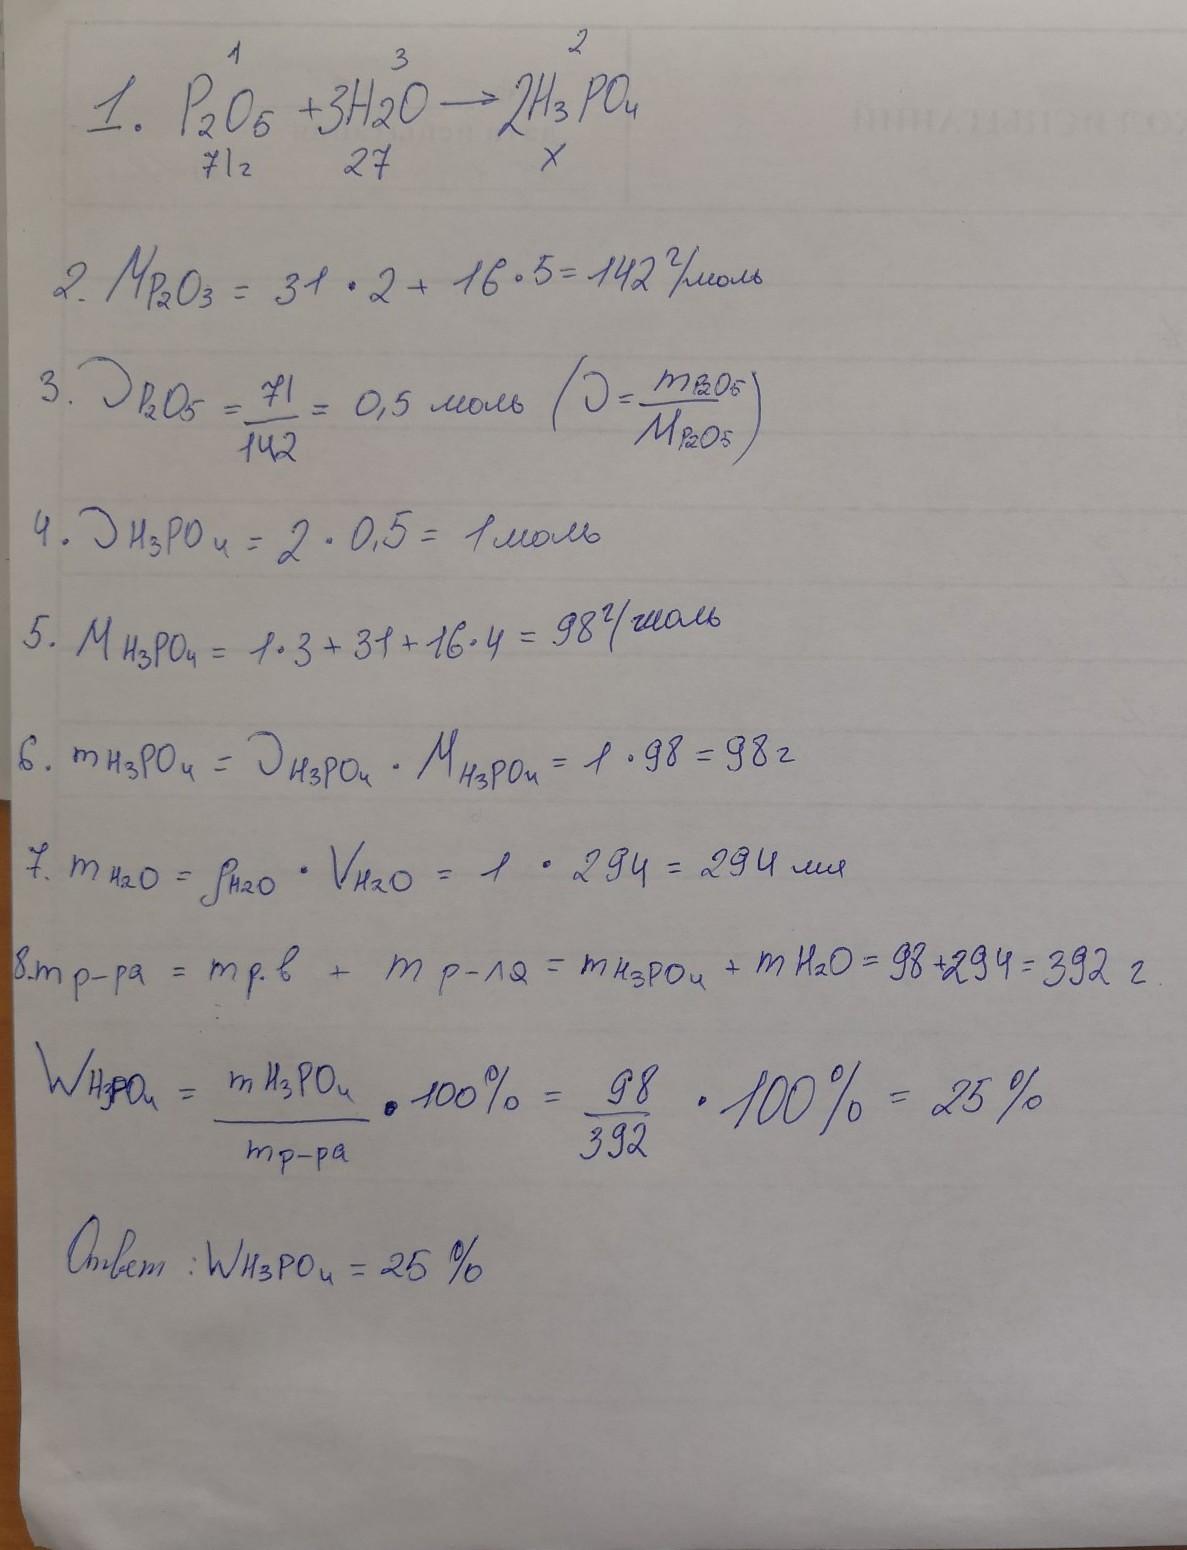 1 3 2
1. P₂O₅ + 3H₂O → 2H₃PO₄
71г 27 x
2. M P₂O₃ = 31 · 2 + 16 · 5 = 142 г/моль
3. ν P₂O₅ = 71/142 = 0,5 моль (ν = m P₂O₅ / M P₂O₅)
4. ν H₃PO₄ = 2 · 0,5 = 1 моль
5. M H₃PO₄ = 1·3 + 31 + 16·4 = 98 г/моль
6. m H₃PO₄ = ν H₃PO₄ · M H₃PO₄ = 1 · 98 = 98 г
7. m H₂O = ρ H₂O · V H₂O = 1 · 294 = 294 мл
8. m р-ра = m р.в + m р-ля = m H₃PO₄ + m H₂O = 98 + 294 = 392 г
W H₃PO₄ = m H₃PO₄ / m р-ра · 100% = 98/392 · 100% = 25%
Ответ : W H₃PO₄ = 25 %